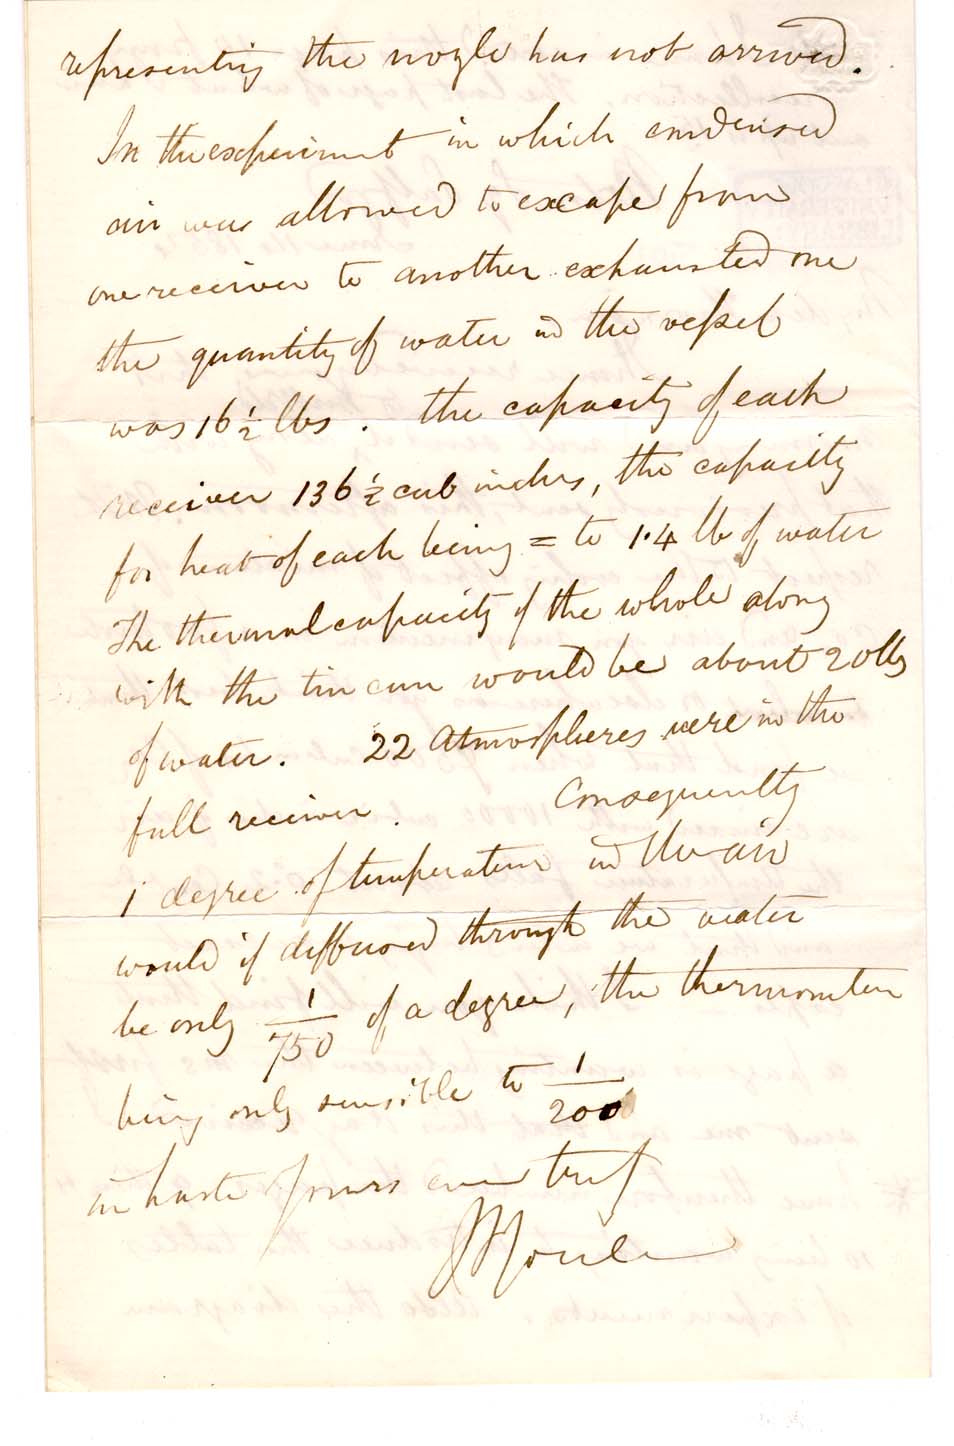 representing the nozle has not arrived.
In the experiment in which condensed
air was allowed to escape from
one receiver to another exhausted one
the quantity of water in the vessel
was 16 1/2 lbs. The capacity of each
receiver 136 1/2 cub inches, the capacity
for heat of each being = to 1.4 lb of water
The thermal capacity of the whole along
with the tin can would be about 20 lbs
of water. 22 Atmospheres were in the
full receiver. Consequently
1 degree of temperature in the air
would if diffused through the water
be only 1/750 of a degree, the thermometer
being only sensible to 1/200
in haste yours ever truly
J P Joule